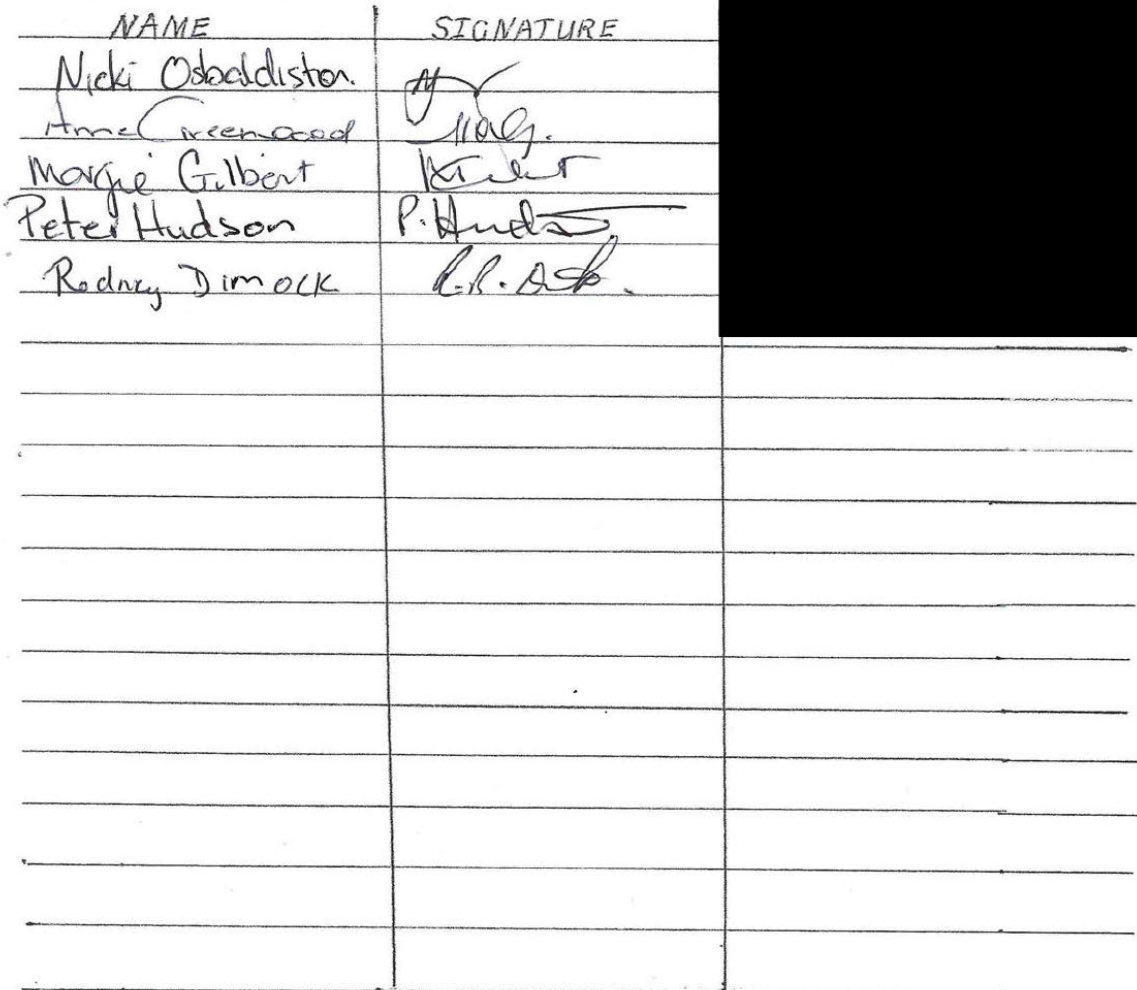 NAME SIGNATURE
Nicki Osbaldiston.
Anne Greenwood
Margie Gilbert
Peter Hudson P. Hudson
Rodney Dimock